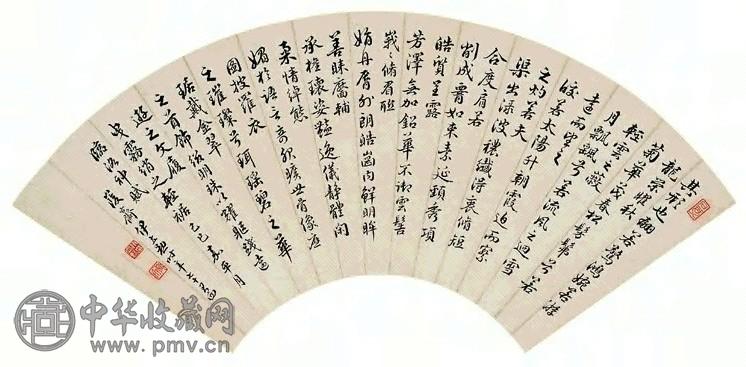 其形也翩若驚鴻婉若游
龍榮曜秋
菊華茂春松髣髴兮若
輕雲之蔽
月飄飄兮若流風之迴雪
遠而望之
皎若太陽升朝霞迫而察
之灼若夫
渠出淥波穠纖得衷脩短
合度肩若
削成腰如束素延頸秀項
皓質呈露
芳澤無加鉛華不御雲髻
峩峩脩眉聯
娟丹唇外朗皓齒內鮮明眸
善睞靨輔
承權瓌姿豔逸儀靜體閑
柔情綽態
媚於語言奇服曠世骨像應
圖披羅衣
之璀璨兮珥瑤碧之華
琚戴金翠
之首飾綴明珠以耀軀踐遠
遊之文履
曳霧綃之輕裾 己巳嘉平月
臨洛神賦
中华收藏网
www.pmv.cn